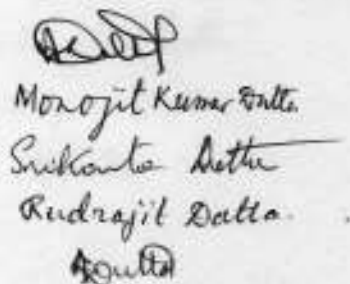 Monojit Kumar Dutta
Srikanta Dutta
Rudrajit Datta.
ADutta